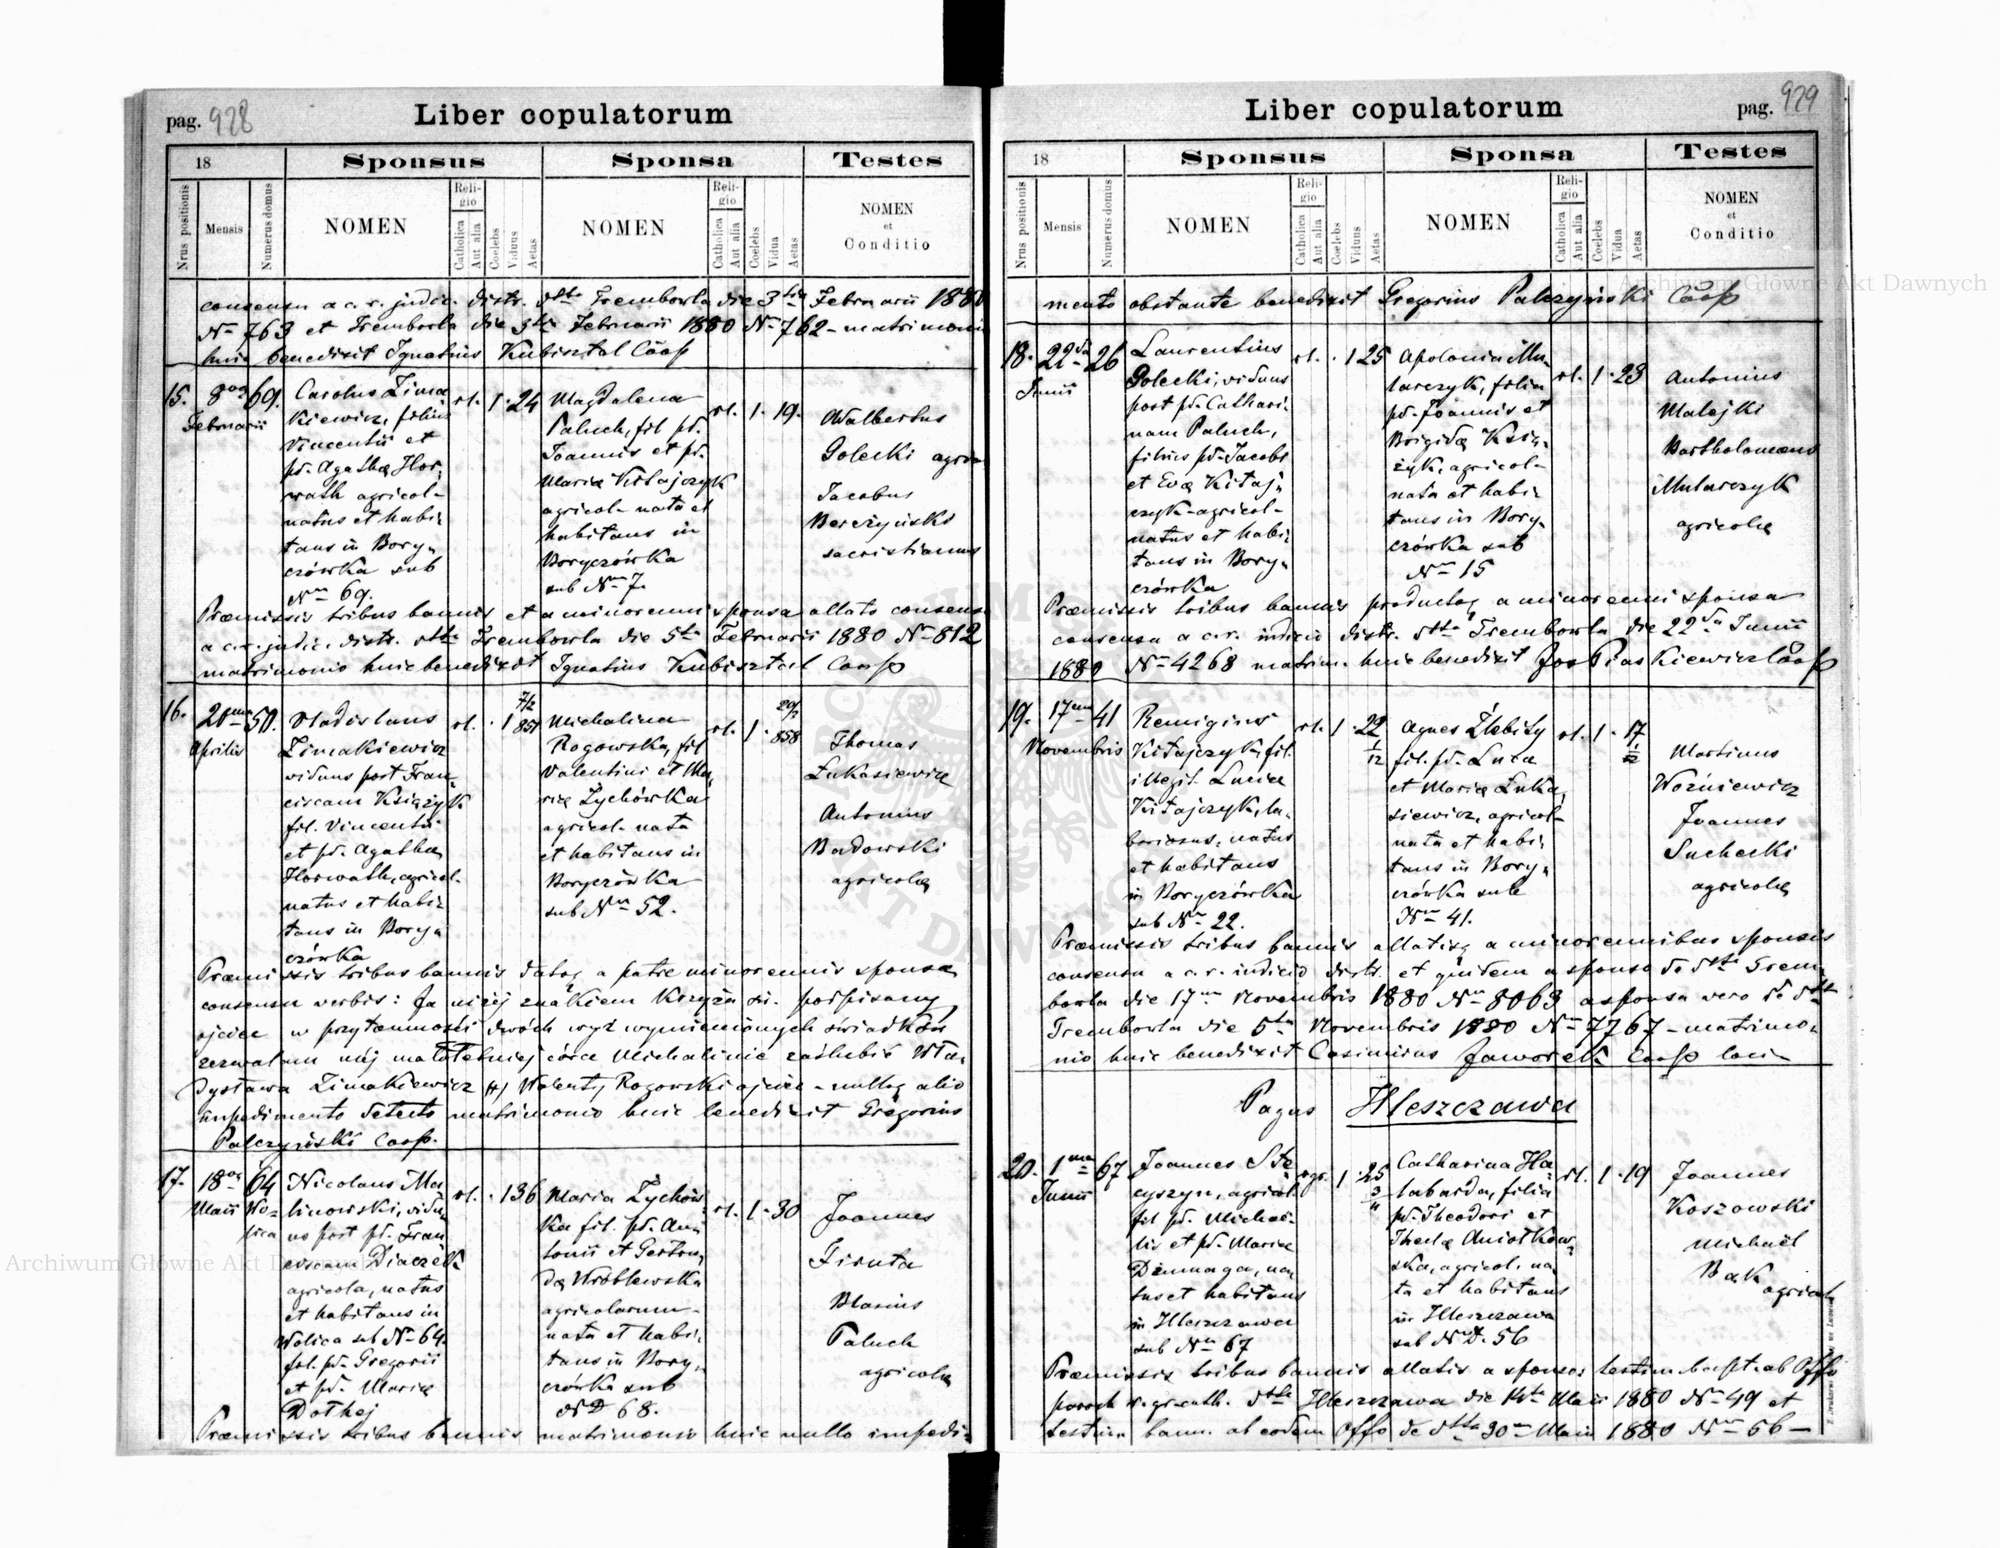 pag. 928
Liber copulatorum
18
Sponsus
Sponsa
Testes
Nrus positionis
Mensis
Numerus domus
NOMEN
Religio
Catholica
Aut alia
Coelebs
Viduus
Aetas
NOMEN
Religio
Catholica
Aut alia
Coelebs
Vidua
Aetas
NOMEN
et
Conditio
consensu a c. r. judic. distr. dtto Trembowla die 3tia Februarii 1880
Nro 763 et Trembowla die 3tia Februarii 1880 Nro 762 - matrimonio
huic benedixit Ignatius Kubisztal Coop
15. 8va Februarii 69.
Carolus Zima-
kiewicz, filius
Vincentii et
pd. Agathæ Hor-
wath agricol-
natus et habi-
tans in Bory-
czówka sub
Nro 69.
rl. 1 · 24
Magdalena
Paluch, fil pd.
Joannis et pd.
Mariæ Kitajczyk
agricol- nata et
habitans in
Boryczówka
sub Nro 7.
rl. 1 · 19.
Walbertus
Golecki agric
Jacobus
Berezyński
sacristianus
Præmissis tribus bannis et a minorenni sponsa allato consensu
a c. r. judic. distr. dtto Trembowla die 5ta Februarii 1880 Nro 812
matrimonio huic benedixit Ignatius Kubisztal Coop
16. Aprilis 50.
Vladislaus
Zimakiewicz
viduus post Fran-
ciscam Księżyk
fil. Vincentii
et pd. Agathæ
Horwath, agricol-
natus et habi-
tans in Bory-
czówka
rl. · 1 7/2 851
Michalina
Rogowska, fil
Valentini et Ma-
riæ Zychówka
agricol- nata
et habitans in
Boryczówka
sub Nro 52.
rl. 1 · 29/7 858
Thomas
Łukasiewicz
Antonius
Badowski
agricolæ
Præmissis tribus bannis datoq a patre minorennis sponsæ
consensu verbis: Ja niżej znakiem krzyża św. podpisany
ojciec w przytomności dwóch wyż wymienionych świadków
zezwalam mej małoletniej córce Michalinie zaślubić Wła-
dysława Zimakiewicz (+) Walenty Rogowski ojciec - nulloq alio
impedimento detecto matrimonio huic benedixit Gregorius
Palczyński Coop.
17. 18va Maii 64 Wo-
lica
Nicolaus Ma-
linowski, vidu-
us post pd. Fran-
ciscam Diaczek
agricola, natus
et habitans in
Wolica sub Nro 64.
fil. pd. Gregorii
et pd. Mariæ
Dothej
rl. · 1 36
Maria Zychów-
ka fil. pd. An-
tonii et Gertru-
dæ Wróblewska
agricolarum -
nata et habi-
tans in Bory-
czówka sub
Nro 68.
rl. 1 · 30
Joannes
Firuta
Blasius
Paluch
agricolæ
Præmissis tribus bannis matrimonio huic nullo impedi-
pag. 929
Liber copulatorum
18
Sponsus
Sponsa
Testes
Nrus positionis
Mensis
Numerus domus
NOMEN
Religio
Catholica
Aut alia
Coelebs
Viduus
Aetas
NOMEN
Religio
Catholica
Aut alia
Coelebs
Vidua
Aetas
NOMEN
et
Conditio
mento obstante benedixit Gregorius Palczyński Coop
18. 22da Junii 26
Laurentius
Golecki, viduus
post pd. Cathari-
nam Paluch,
filius pd. Jacobi
et Evæ Kitaj-
czyk - agricol-
natus et habi-
tans in Bory-
czówka
rl. · 1 25
Apolonia Mu-
larczyk, filia
pd. Joannis et
Brigidæ Księ-
żyk, agricol-
nata et habi-
tans in Bory-
czówka sub
Nro 15
rl. 1 · 23
Antonius
Malejki
Bartholomæus
Mularczyk
agricolæ
Præmissis tribus bannis productoq a minorenni sponsa
consensu a c. r. iudicio distr. dtto Trembowla die 22da Junii
1880 Nro 4268 matrim. huic benedixit Jos Piaskiewicz Coop
19. 17ma Novembris 41
Remigius
Kitajczyk, fil.
illegit. Luciæ
Kitajczyk, la-
boriosus, natus
et habitans
in Boryczówka
sub Nro 22.
rl. 1 · 22 1/12
Agnes Źrebiły
fil. pd. Lucæ
et Mariæ Łuka-
siewicz, agricol-
nata et habi-
tans in Bory-
czówka sub
Nro 41.
rl. 1 · 17
Martinus
Woźniewicz
Joannes
Suchecki
agricolæ
Præmissis tribus bannis allatisq a minorennibus sponsis
consensu a c. r. iudicio distr. et quidem a sponso de dtto Trem-
bowla die 17ma Novembris 1880 Nro 8063 a sponsa vero de dtto
Trembowla die 5ta Novembris 1880 Nro 7767 - matrimo-
nio huic benedixit Casimirus Jaworek Coop loci
Pagus Hleszczawa
20. 1ma Junii 67
Joannes Ste-
cyszyn, agricol
fil pd. Michae-
lis et pd. Mariæ
Dżumaga, na-
tus et habitans
in Hleszczawa
sub Nro 67
rgr. 1 · 25
Catharina Ha-
labarda, filia
pd. Theodori et
Theclæ Aniołkow-
ska, agricol. na-
ta et habitans
in Hleszczawa
sub Nro D. 56
rl. 1 · 19
Joannes
Koszowski
Michaël
Bąk
agricolæ
Præmissis tribus bannis allatis a sponso: testim. bapt. ab Offo
paroch r. gr. cath. dtto Hleszczawa die 14ta Maii 1880 Nro 49 et
testim bann. ab eodem Offo de dtto 30ma Maii 1880 Nro 56 -
Archiwum Główne Akt Dawnych
Archiwum Główne Akt Dawnych
ARCHIWUM GŁÓWNE AKT DAWNYCH